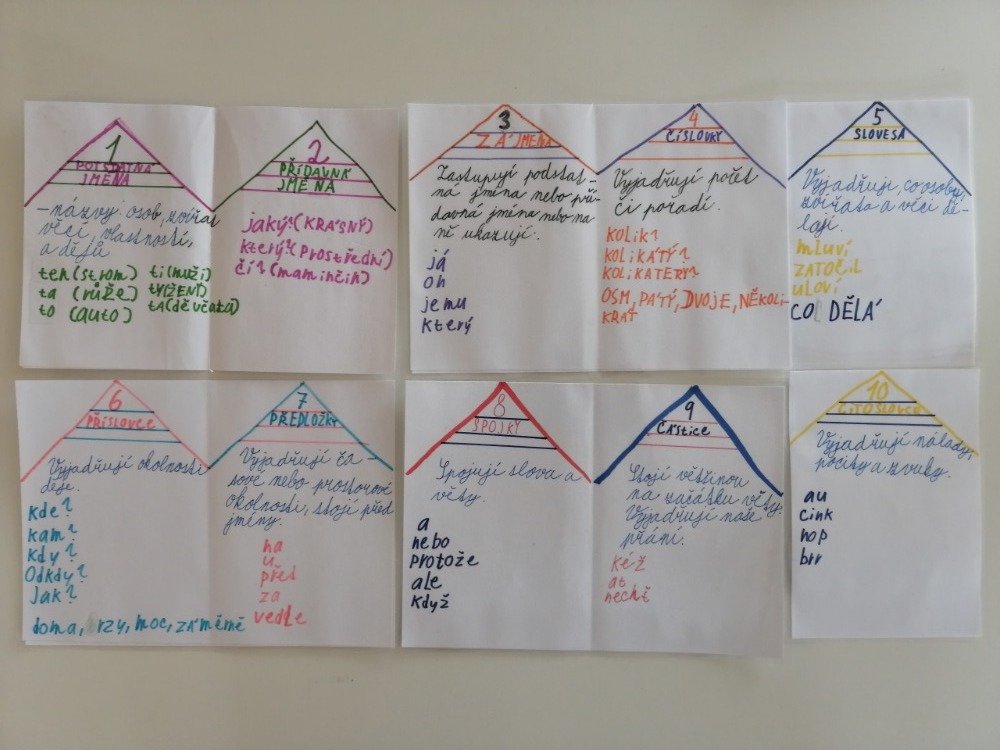 1
PODSTATNÁ
JMÉNA
-názvy osob, zvířat
věcí, vlastností,
a dějů
ten (strom) ti (muži)
ta (růže) ty (ženy)
to (auto) ta (děvčata)
2
PŘÍDAVNÁ
JMÉNA
jaký? (KRÁSNÝ)
který? (prostřední)
čí? (maminčin)
3
ZÁJMENA
Zastupují podstat-
ná jména nebo pří-
davná jména nebo na
ně ukazují.
já
on
jemu
který
4
ČÍSLOVKY
Vyjadřují počet
či pořadí.
KOLIK?
KOLIKÁTÝ?
KOLIKATERÝ?
OSM, PÁTÝ, DVOJE, NĚKOLI-
KRÁT
5
SLOVESA
Vyjadřují, co osoby,
zvířata a věci dě-
lají.
mluví
ZATOČIL
uloví
CO DĚLÁ
6
PŘÍSLOVCE
Vyjadřují okolnosti
děje.
Kde?
kam?
Kdy?
Odkdy?
Jak?
doma, brzy, moc, záměrně
7
PŘEDLOŽKY
Vyjadřují ča-
sové nebo prostorové
okolnosti, stojí před
jmény.
na
u
před
za
vedle
8
SPOJKY
Spojují slova a
věty.
a
nebo
protože
ale
když
9
ČÁSTICE
Stojí většinou
na začátku věty.
Vyjadřují naše
přání.
kéž
ať
nechť
10
CITOSLOVCE
Vyjadřují nálady,
pocity a zvuky.
au
cink
hop
brr